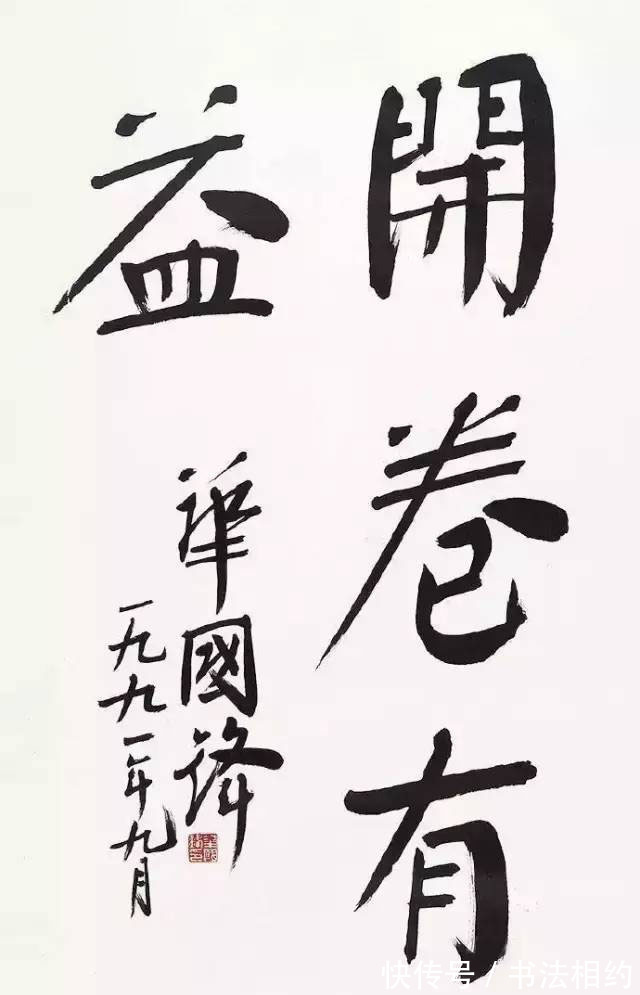 開卷有
益
華國鋒
一九九一年九月
快传号/书法相约